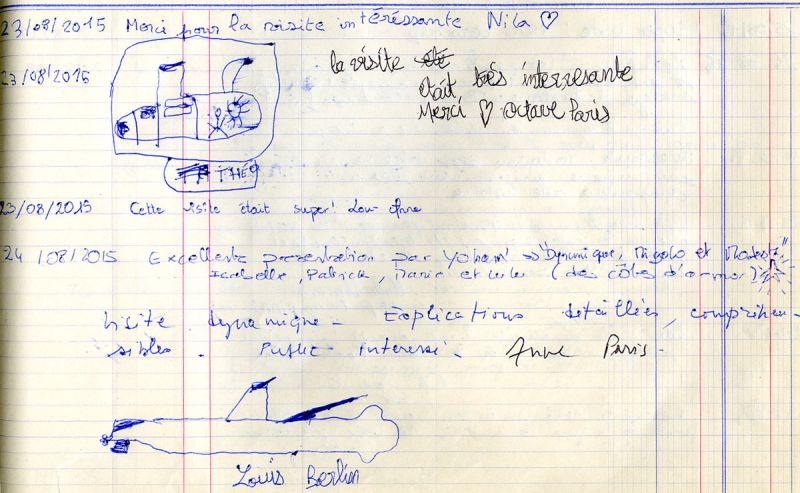 23/08/2015 Merci pour la visite intéréssante Nila ♡
23/08/2015
la visite
était très interresante
Merci ♡ Octave Paris
THÉO
23/08/2015 Cette visite était super! Lou-Anne
24/08/2015 Excellente presentation par Yohann → "Dynamique, Rigolo et
Isabelle, Patrick, Marie et Lulu (des côtes d'armor)
Visite dynamique - Explications détaillées, compréhen-
sibles. Public interessé - Anne Paris -
Louis Berlin